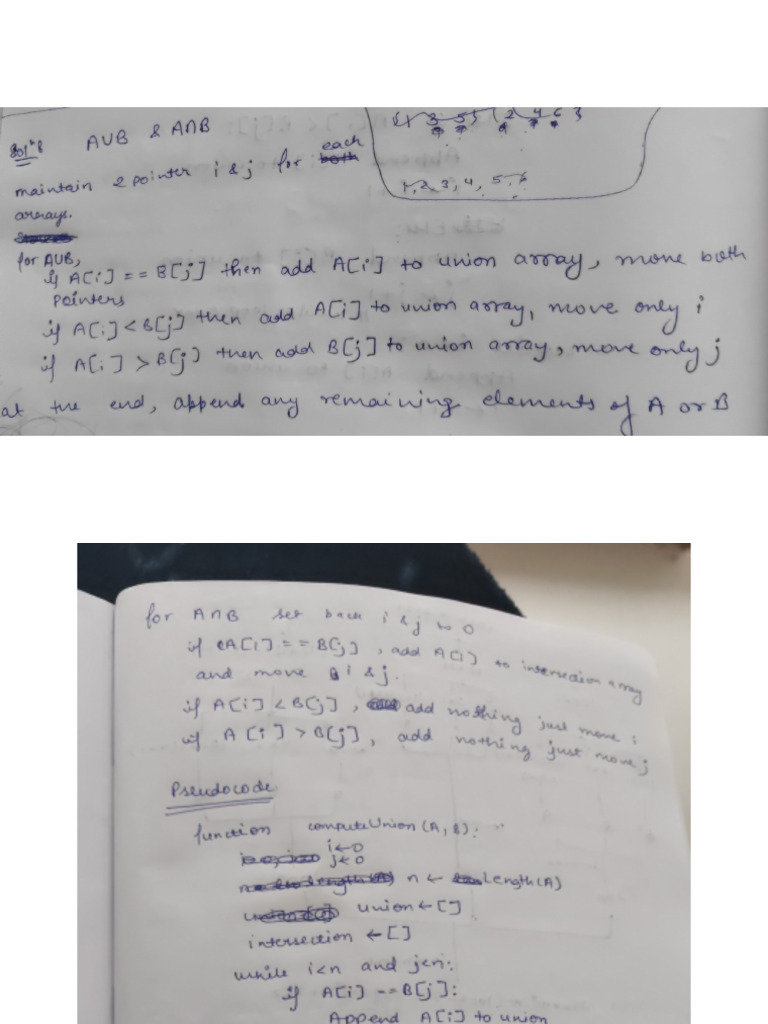 Solⁿ: A∪B & A∩B
{1 3 5} {2 4 6}
1, 2, 3, 4, 5, 6
maintain 2 pointer i & j for each
arrays.
for A∪B,
if A[i] == B[j] then add A[i] to union array, move both
pointers
if A[i] < B[j] then add A[i] to union array, move only i
if A[i] > B[j] then add B[j] to union array, move only j
at the end, append any remaining elements of A or B
for A∩B set back i & j to 0
if A[i] == B[j], add A[i] to intersection array
and move i & j.
if A[i] < B[j], add nothing just move i
if A[i] > B[j], add nothing just move j
Pseudocode
function computeUnion(A, B):
i ← 0
j ← 0
n ← Length(A)
union ← []
intersection ← []
while i<n and j<n:
if A[i] == B[j]:
Append A[i] to union